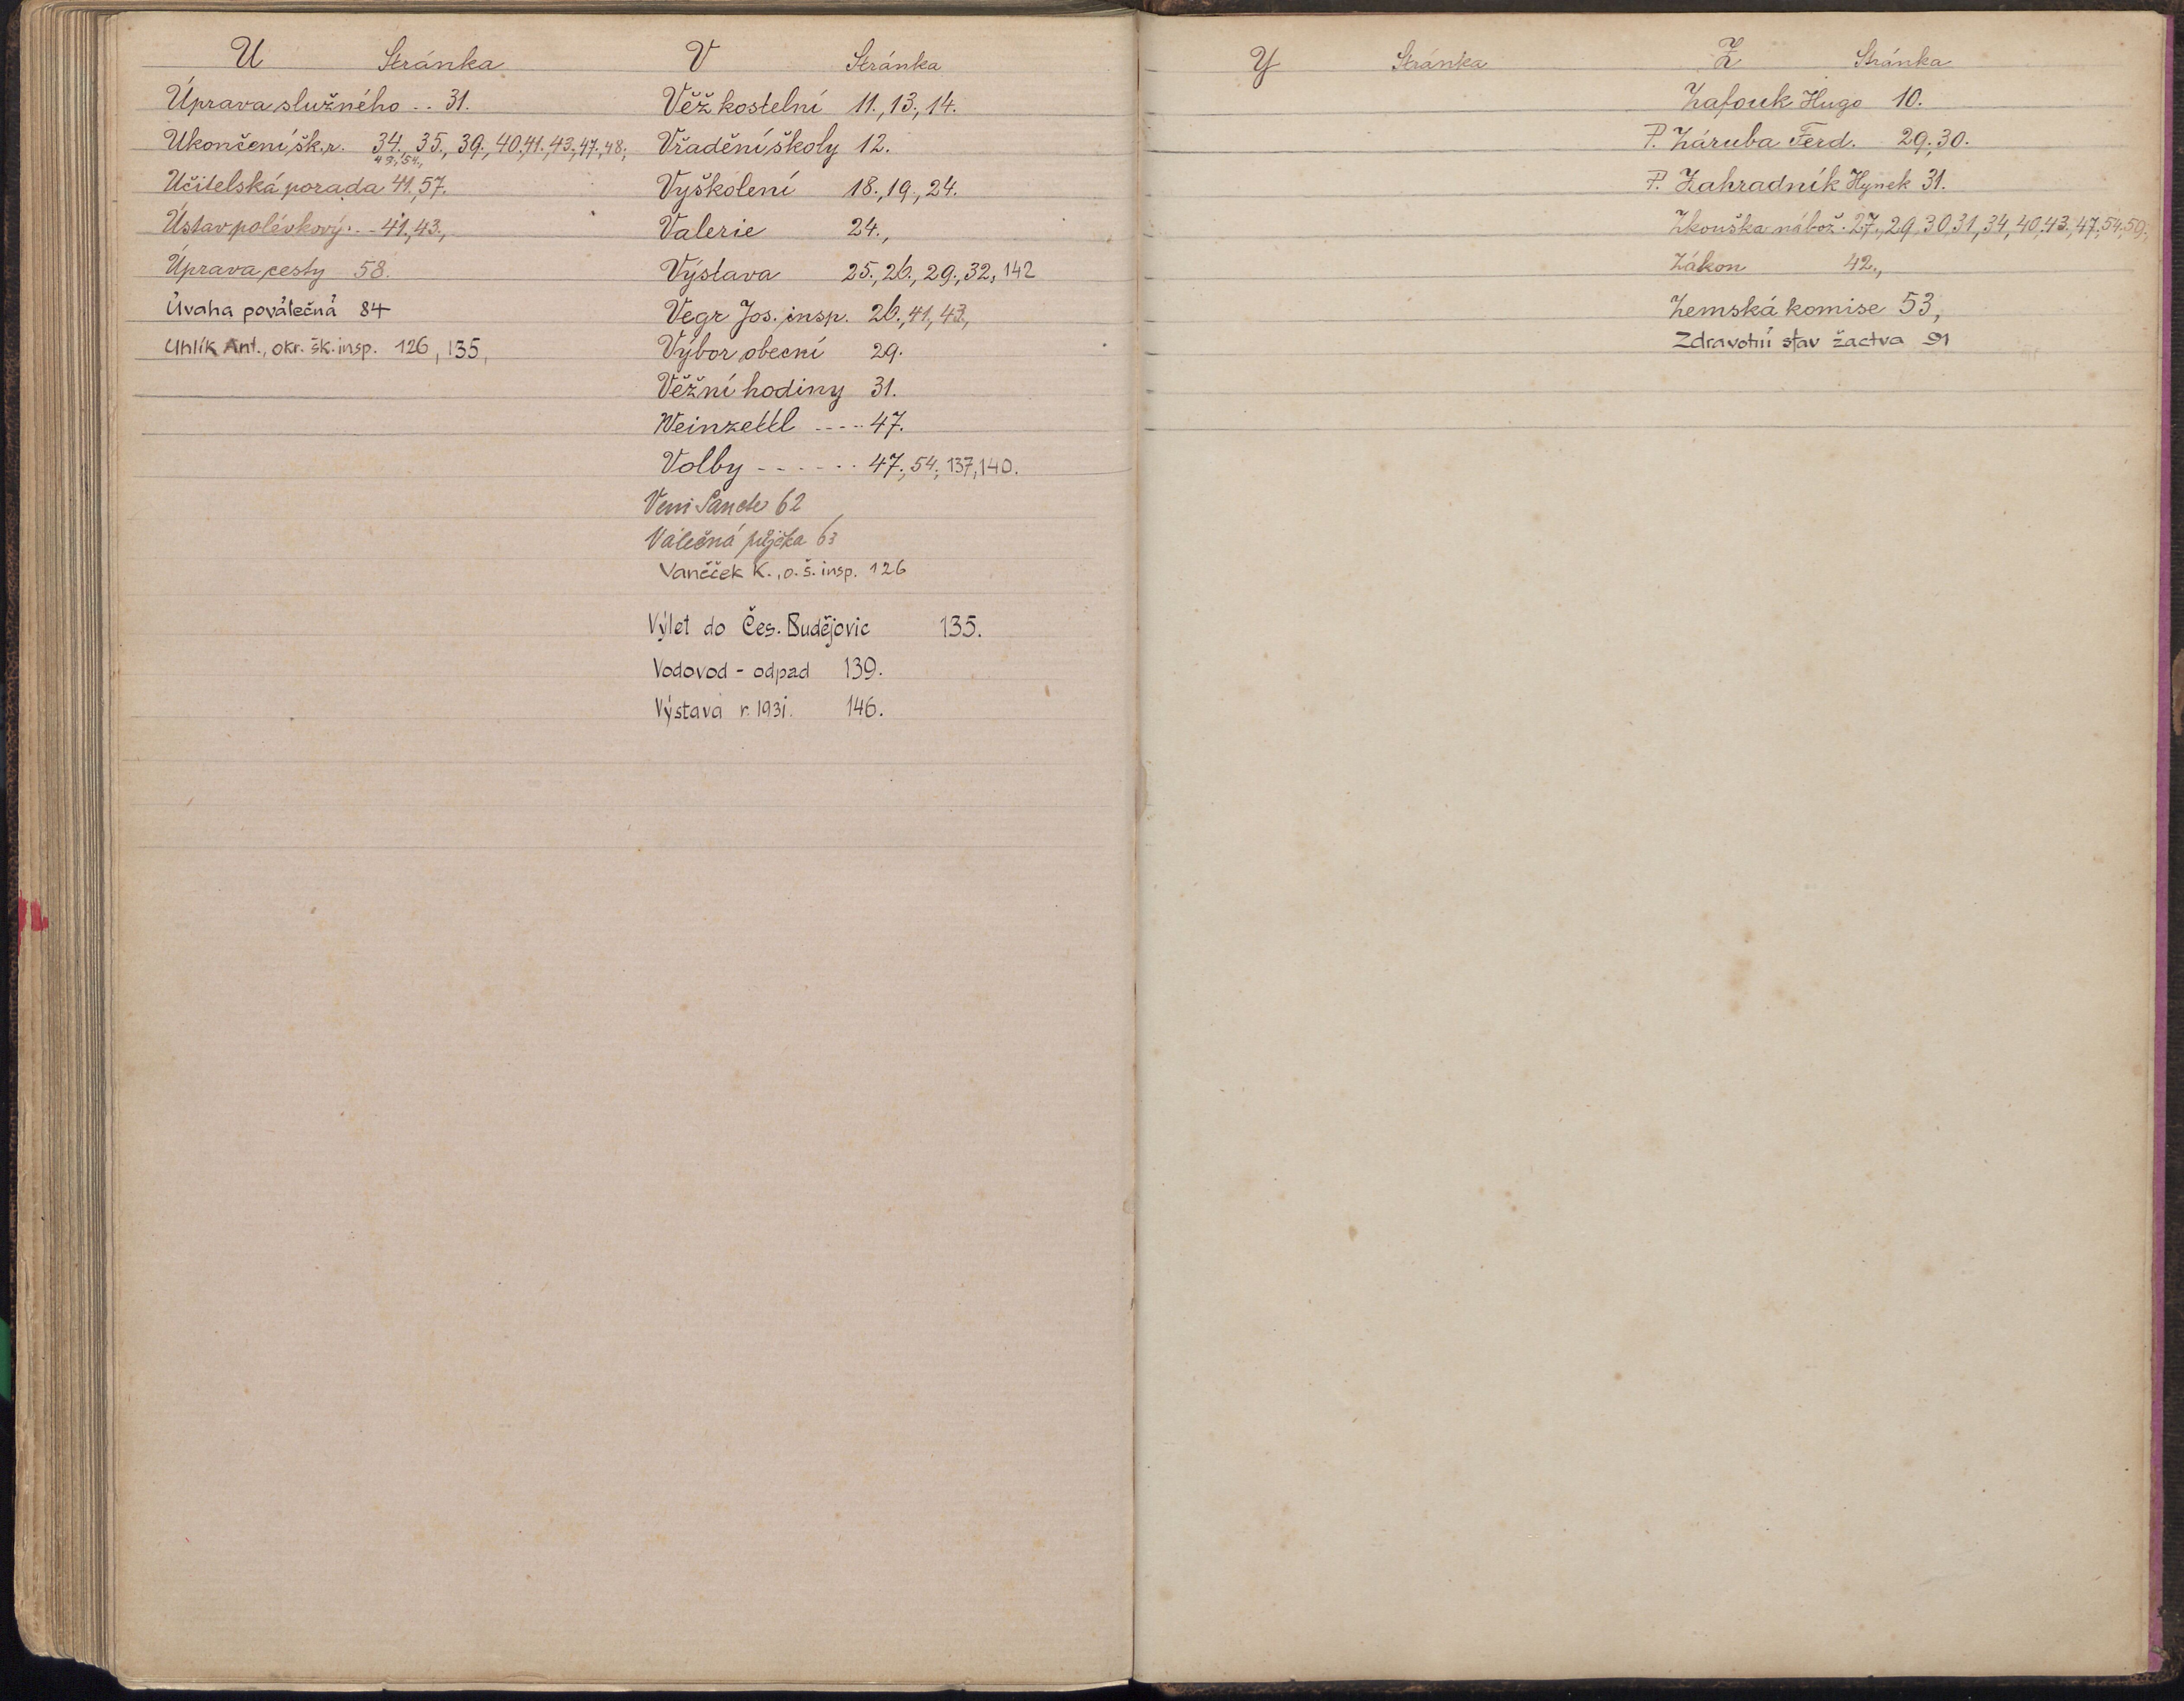 U Stránka
Úprava služného .. 31.
Ukončení šk. r. 34., 35., 39., 40., 41., 43., 47., 48.,
49., 54.,
Učitelská porada 41., 57.
Ústav polévkový . . - 41., 43.,
Úprava cesty 58.
Úvaha poválečná 84
Uhlík Ant., okr. šk. insp. 126, 135,
V Stránka
Věž kostelní 11., 13., 14.
Vřadění školy 12.
Vyškolení 18., 19., 24.
Valerie 24.,
Výstava 25., 26., 29., 32, 142
Vegr Jos. insp. 26., 41., 43.,
Výbor obecní 29.
Věžní hodiny 31.
Weinzettl - - - - 47.
Volby - - - - - - 47., 54., 137, 140.
Veni Sancte 62
Válečná půjčka 63
Vaněček K., o. š. insp. 126
Výlet do Čes. Budějovic 135.
Vodovod - odpad 139.
Výstava r. 1931. 146.
Y Stránka
Z Stránka
Zafouk Hugo 10.
P. Záruba Ferd. 29., 30.
P. Zahradník Hynek 31.
Zkouška nábož. 27., 29, 30, 31, 34, 40, 43., 47., 54., 59.,
Zákon 42.,
Zemská komise 53,
Zdravotní stav žactva 91